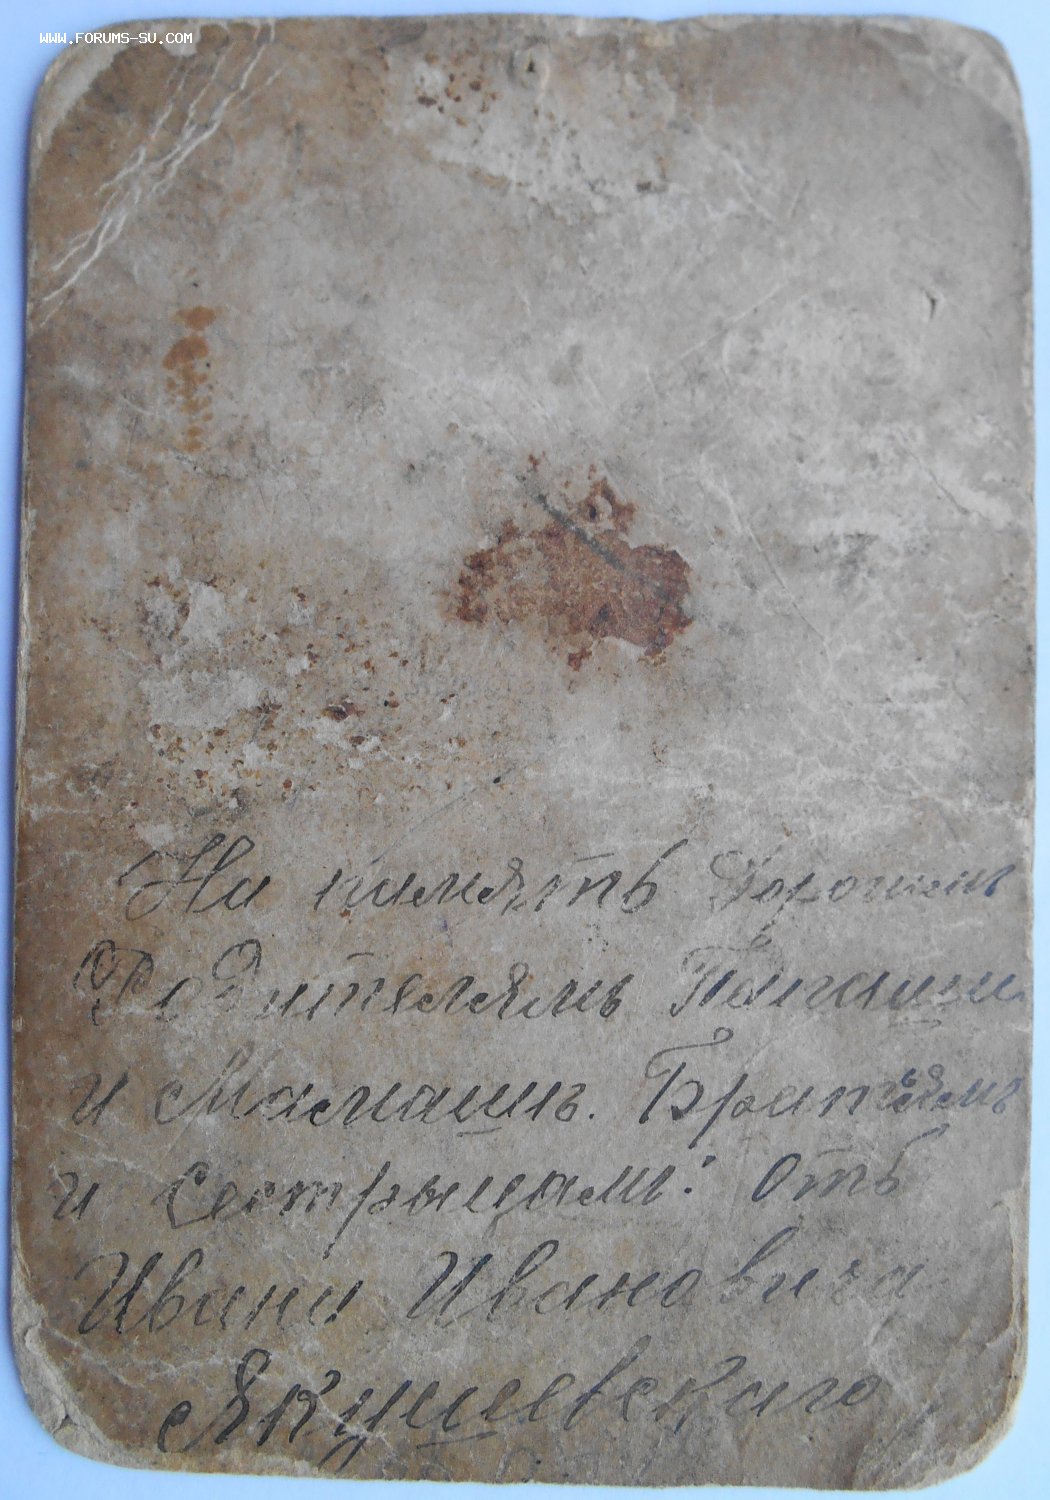 WWW.FORUMS-SU.COM
На память Дорогимъ
Родителямъ Папаши
и Мамашъ. Братъямъ
и сестрыцамъ: отъ
Ивана Ивановича
Якушевскаго